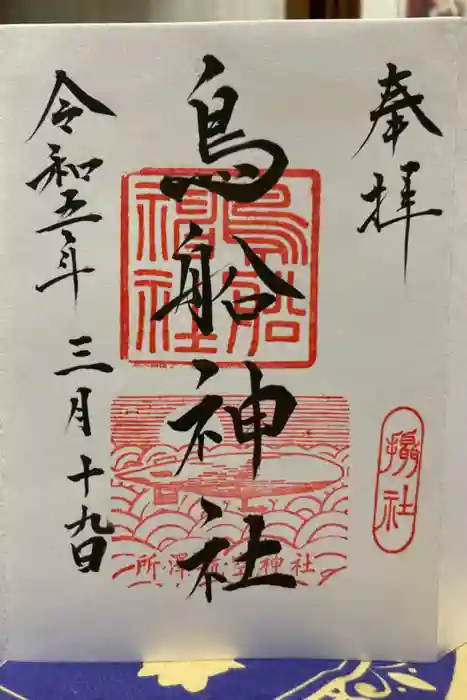 奉拝
摂社
鳥船神社
鳥船
神社
所澤航空神社
令和五年 三月十九日